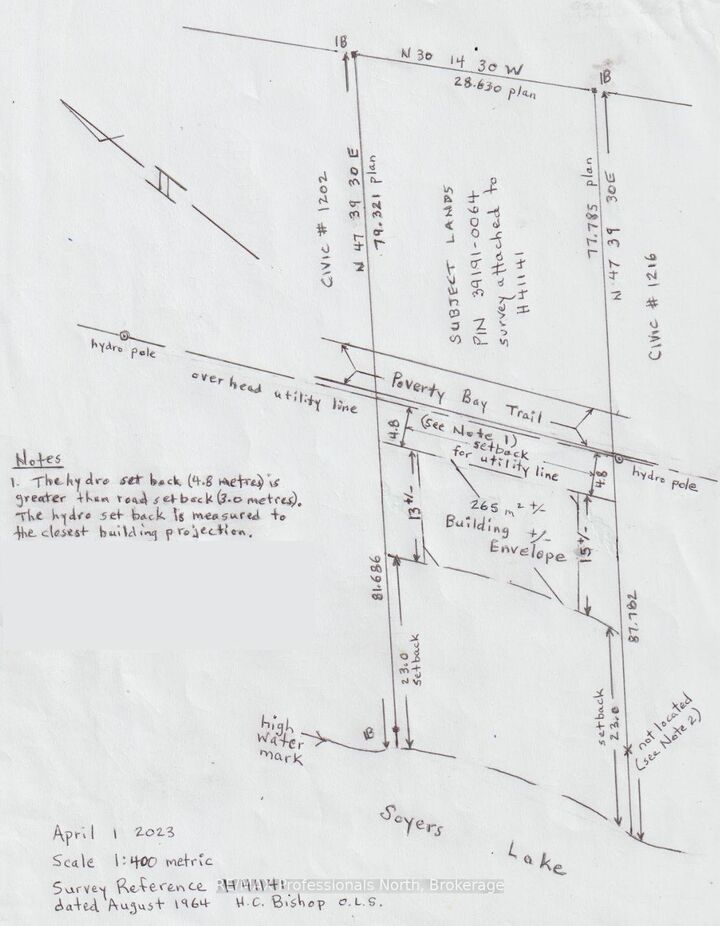 IB
N 30 14 30 W
IB
28.630 plan
CIVIC # 1202
N 47 39 30 E
79.321 plan
SUBJECT LANDS
PIN 39191-0064
survey attached to
H41141
77.785 plan
N 47 39 30E
CIVIC # 1216
N
hydro pole
overhead utility line
Poverty Bay Trail
4.8
(see Note 1)
setback
for utility line
4.8
hydro pole
Notes
1. The hydro set back (4.8 metres) is
greater than road setback (3.0 metres).
The hydro set back is measured to
the closest building projection.
13 +/-
265 m² +/-
Building +/-
Envelope
15 +/-
81.686
87.782
23.0
setback
setback
23.0
not located
(see Note 2)
IB
high
water
mark
Soyers
Lake
April 1 2023
Scale 1:400 metric
Survey Reference H41141
RE/MAX Professionals North, Brokerage
dated August 1964 H.C. Bishop O.L.S.